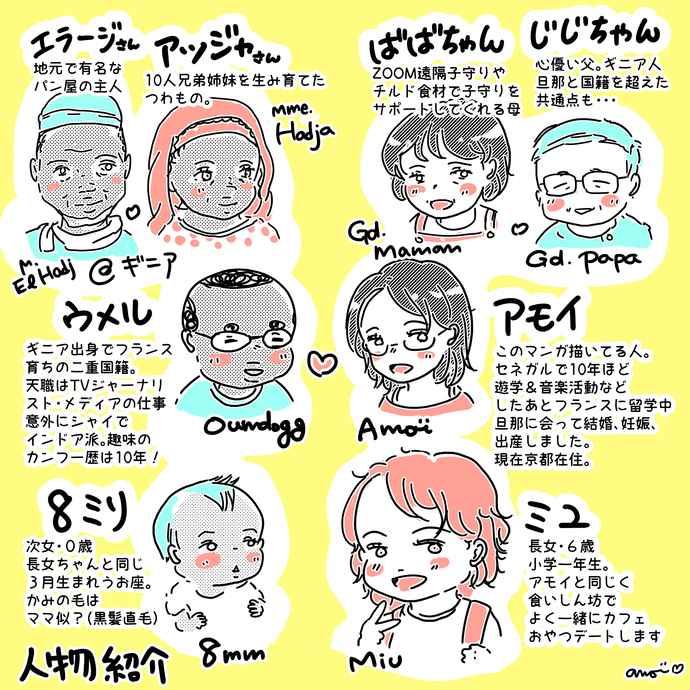 エラージさん
地元で有名な
パン屋の主人
アッジャさん
10人兄弟姉妹を生み育てた
つわもの。
mme.
Hadja
M.
El Hadj
@ギニア
ばばちゃん
ZOOM遠隔子守りや
チルド食材で子守りを
サポートしてくれる母
Gd.
Maman
じじちゃん
心優しい父。ギニア人
旦那と国籍を超えた
共通点も・・・
Gd. Papa
ウメル
ギニア出身でフランス
育ちの二重国籍。
天職はTVジャーナリ
スト・メディアの仕事
意外にシャイで
インドア派。趣味の
カンフー歴は10年！
Oumdogg
アモイ
このマンガ描いてる人。
セネガルで10年ほど
遊学＆音楽活動など
したあとフランスに留学中
旦那に会って結婚、妊娠、
出産しました。
現在京都在住。
Amoï
8ミリ
次女・0歳
長女ちゃんと同じ
3月生まれうお座。
かみの毛は
ママ似？(黒髪直毛)
8mm
ミユ
長女・6歳
小学一年生。
アモイと同じく
食いしん坊で
よく一緒にカフェ
おやつデートします
Miu
人物紹介
amoï